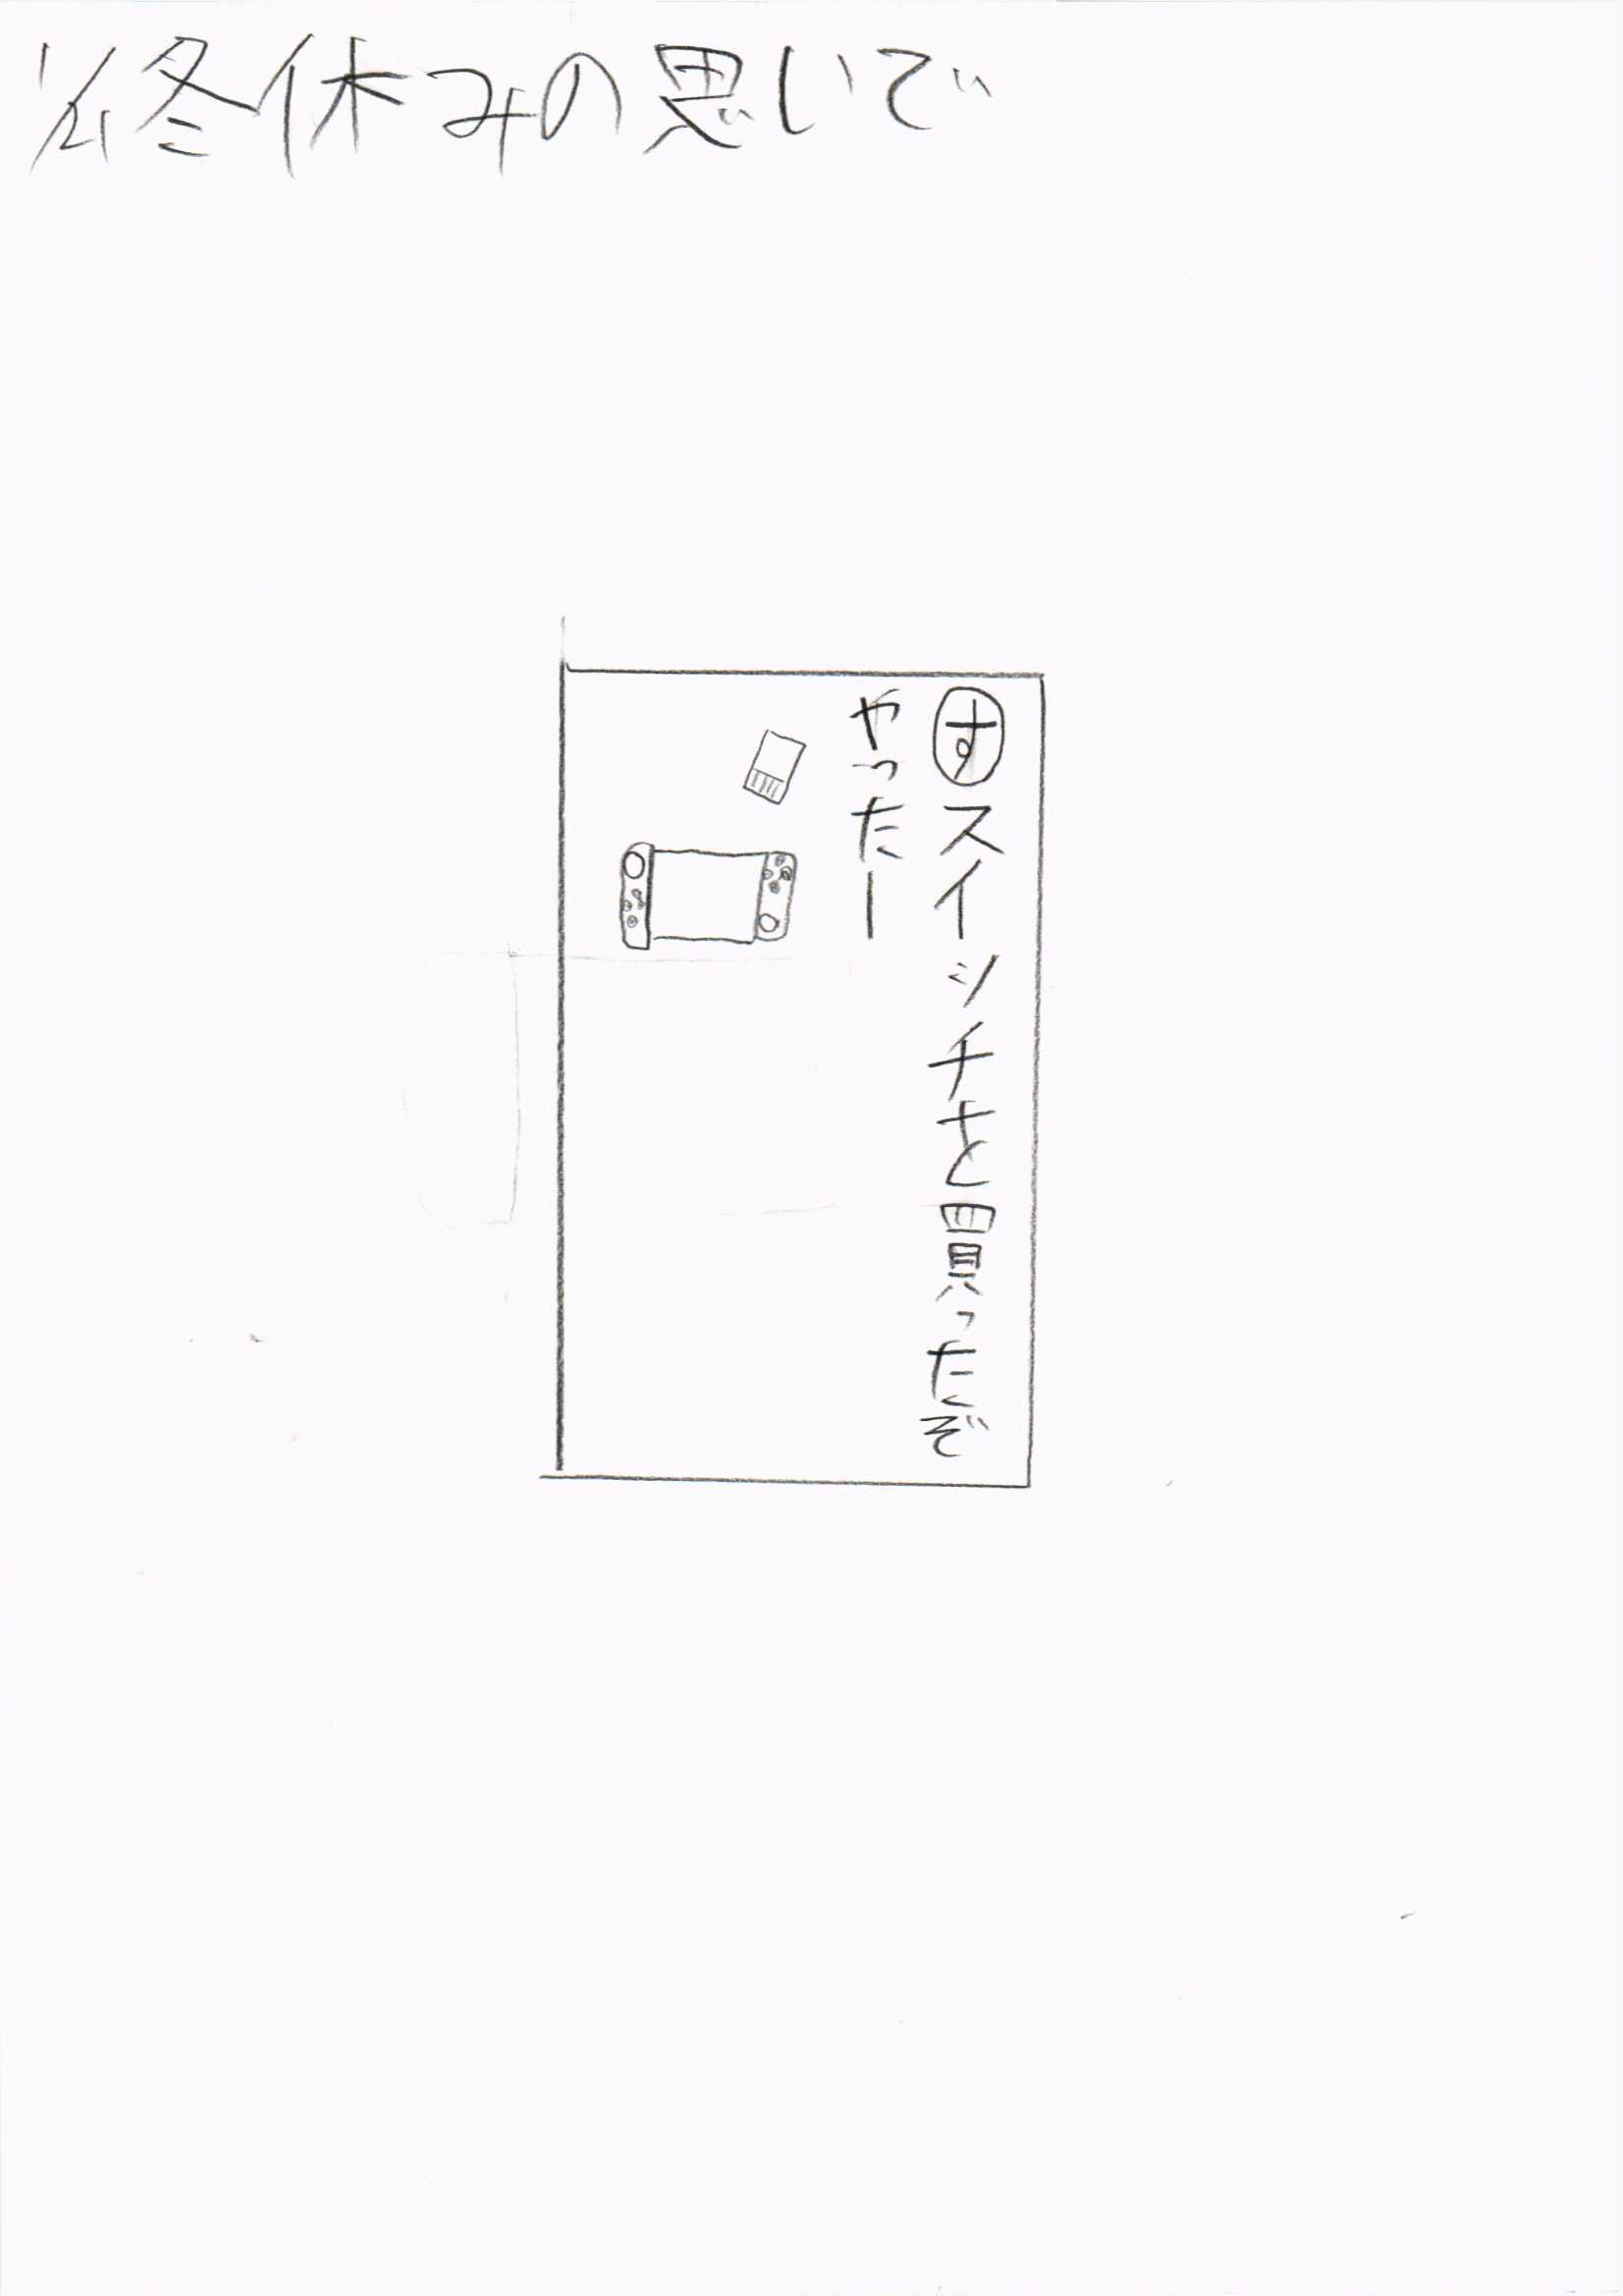 1/21冬休みの思いで
すスイッチを買ったぞ
やったー